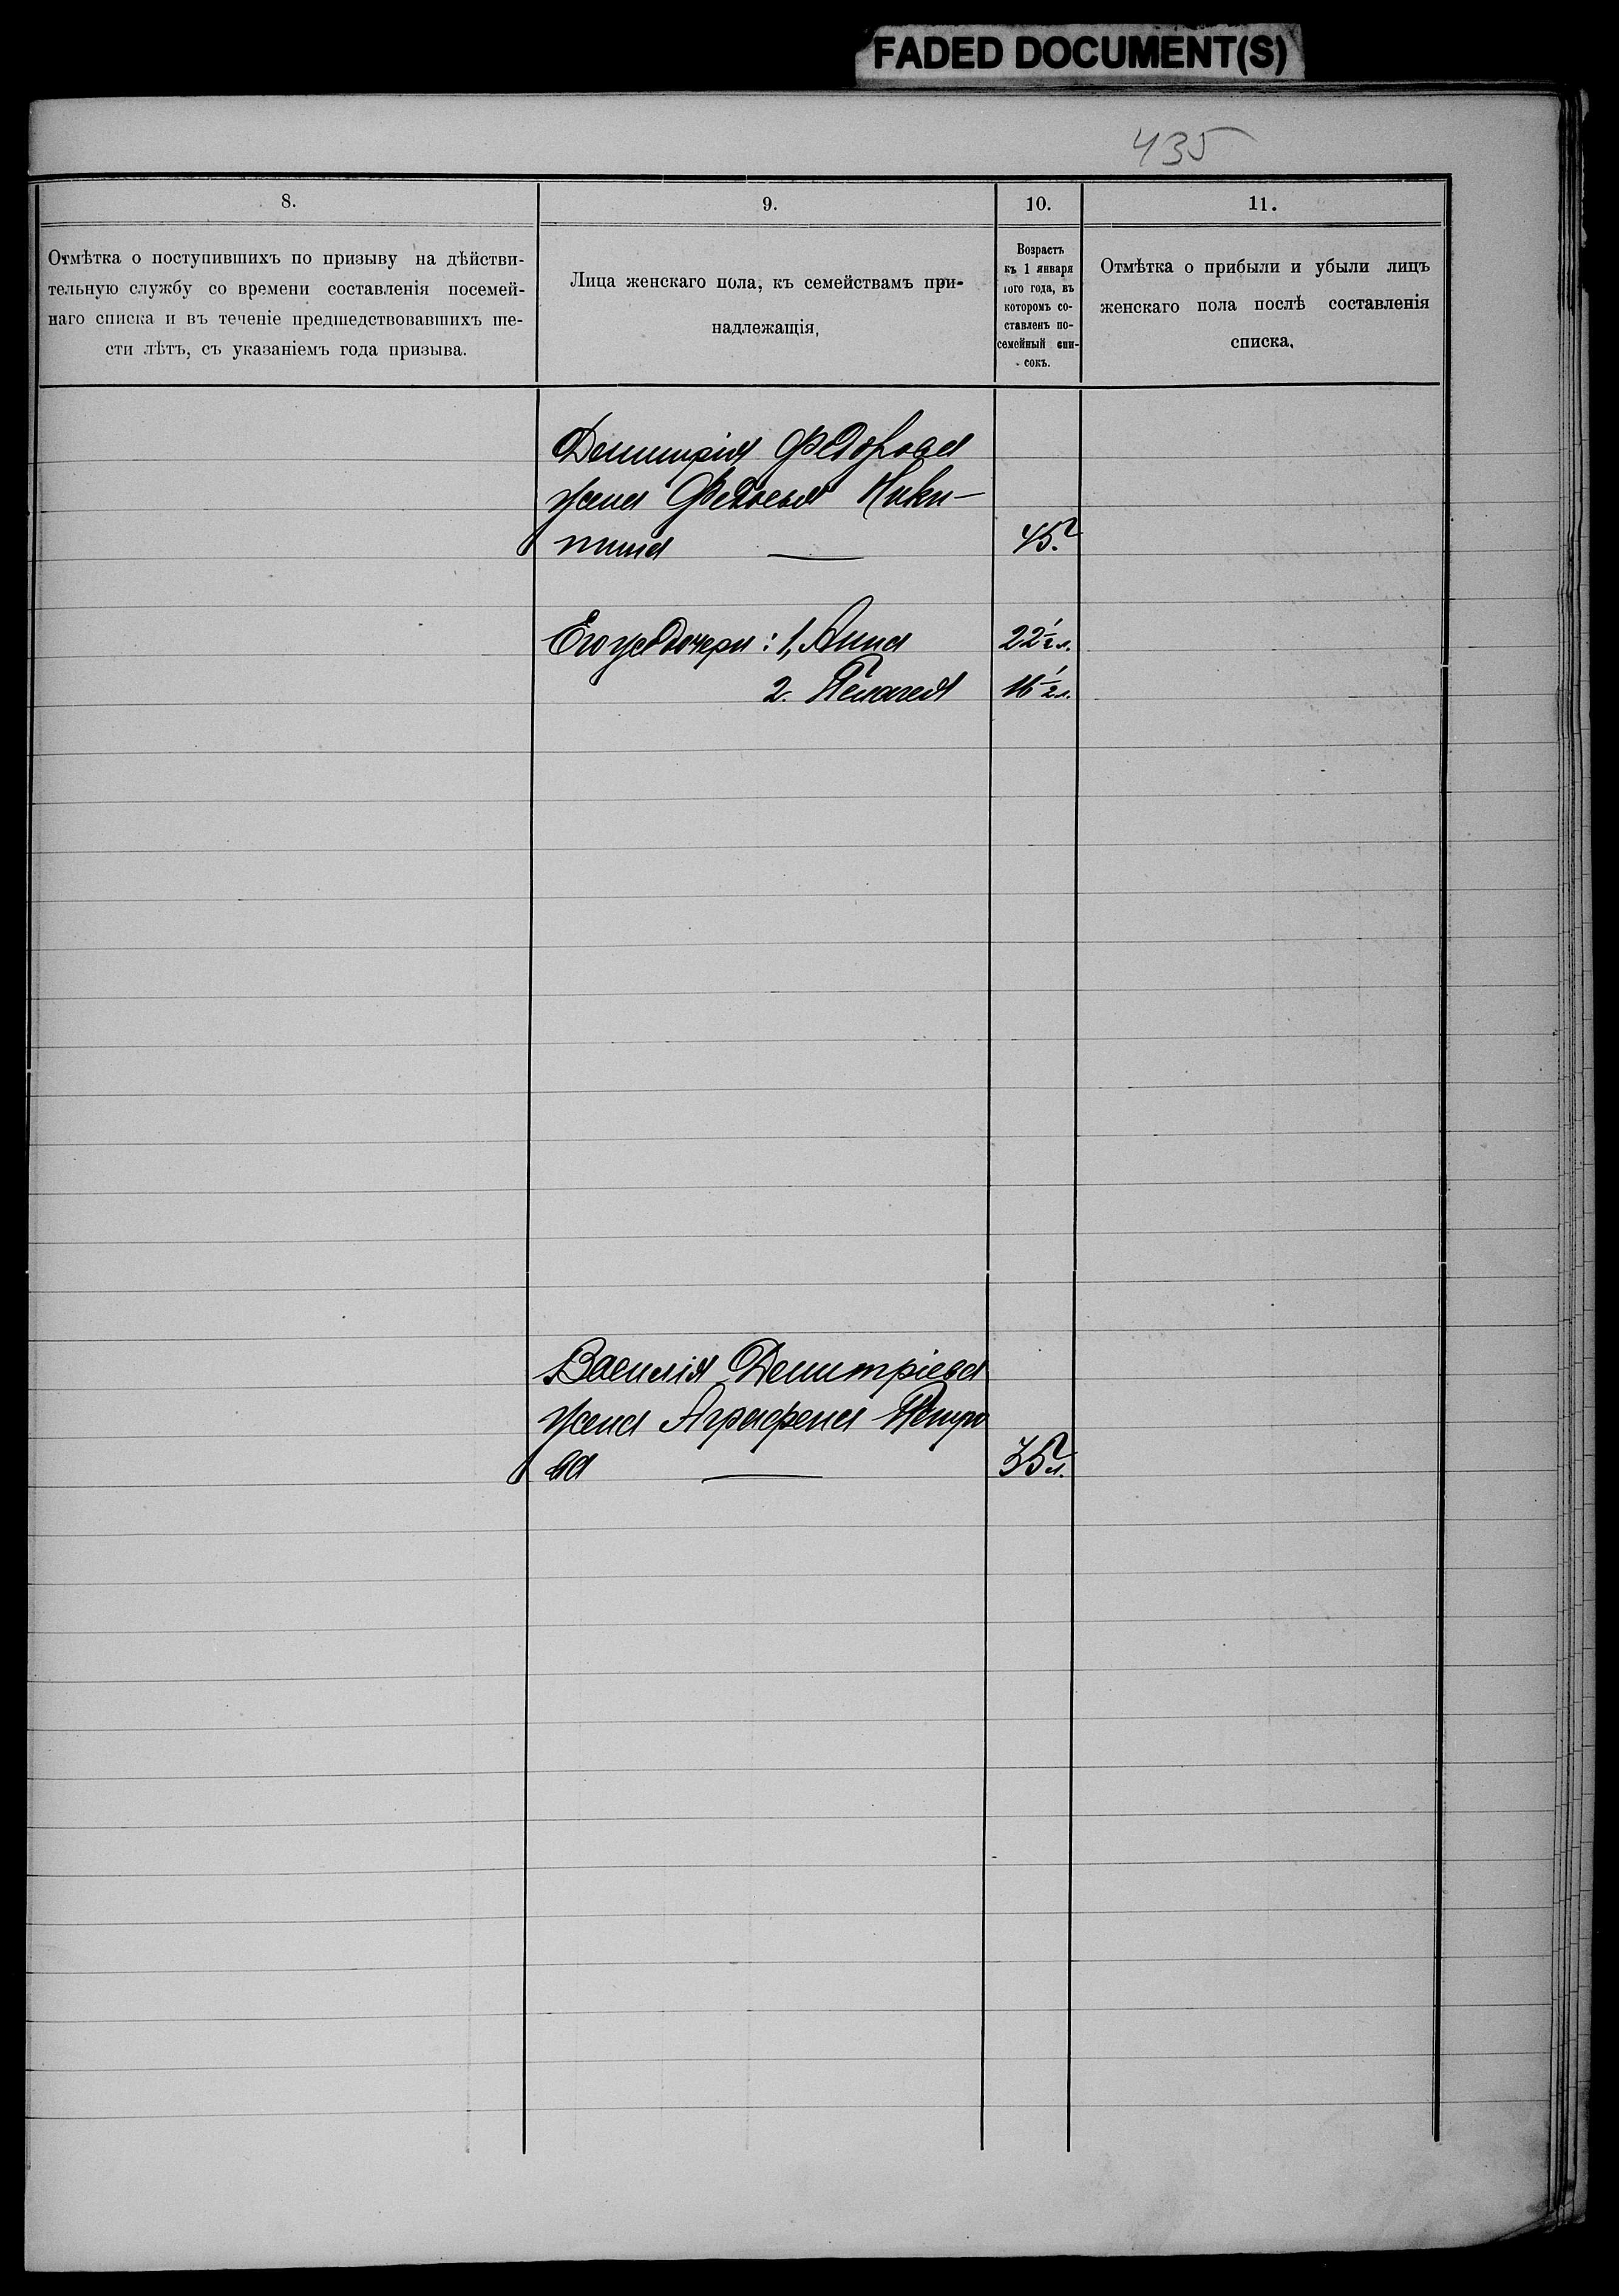 FADED DOCUMENT(S)
435
8.
9.
10.
11.
Отмѣтка о поступившихъ по призыву на дѣйстви-
тельную службу со времени составленія посемей-
наго списка и въ теченіе предшедствовавшихъ ше-
сти лѣтъ, съ указаніемъ года призыва.
Лица женскаго пола, къ семействамъ при-
надлежащія,
Возрастъ
къ 1 января
того года, въ
которомъ со-
ставленъ по-
семейный спи-
сокъ.
Отмѣтка о прибыли и убыли лицъ
женскаго пола послѣ составленія
списка.
Димитрія Федорова
жена Федосья Ники-
тина — 45
Его дочери: 1, Анна 22½ л.
2. Пелагея 16½ л.
Василія Димитріева
жена Аграфена Петро
ва — 35 л.